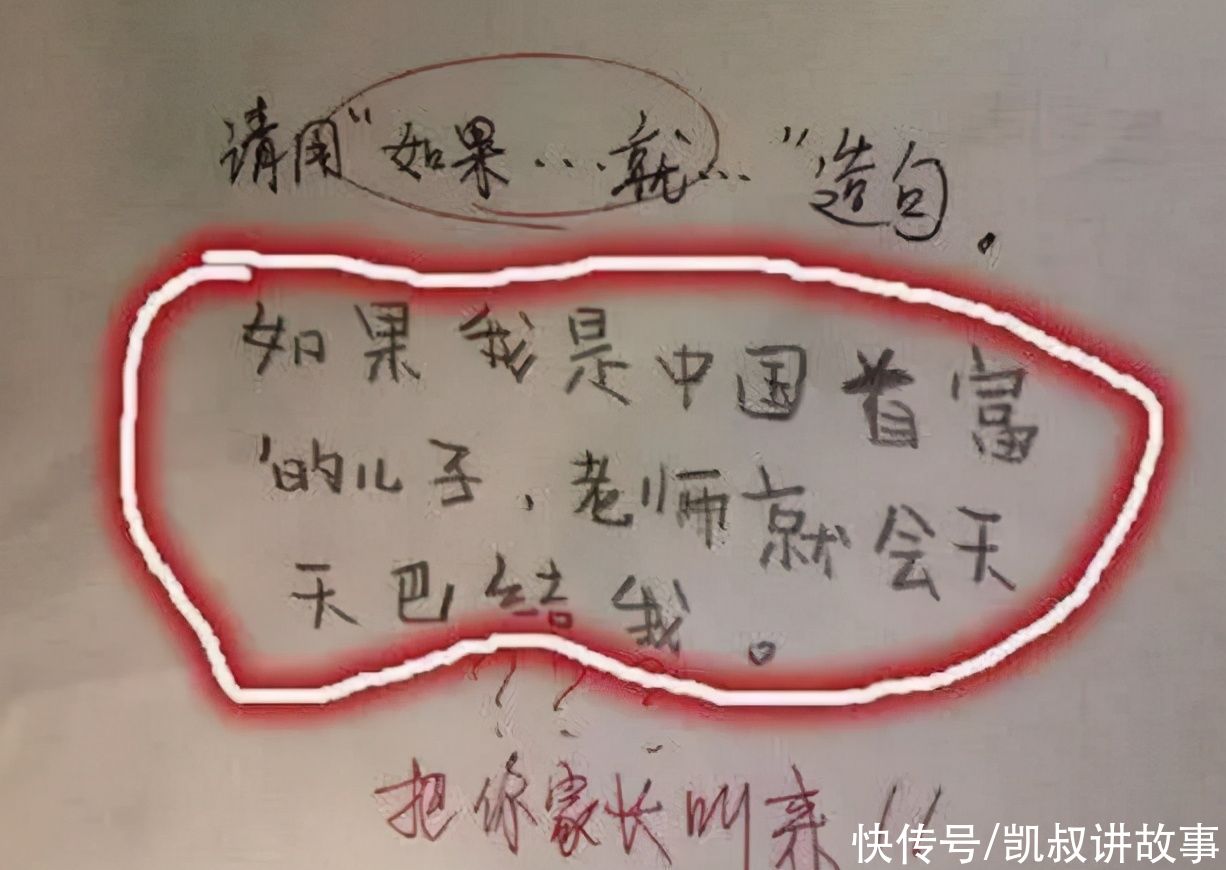 请用“如果...就...”造句.
如果我是中国首富
的儿子,老师就会天
天巴结我。
? ? ?
把你家长叫来!!
快传号/凯叔讲故事